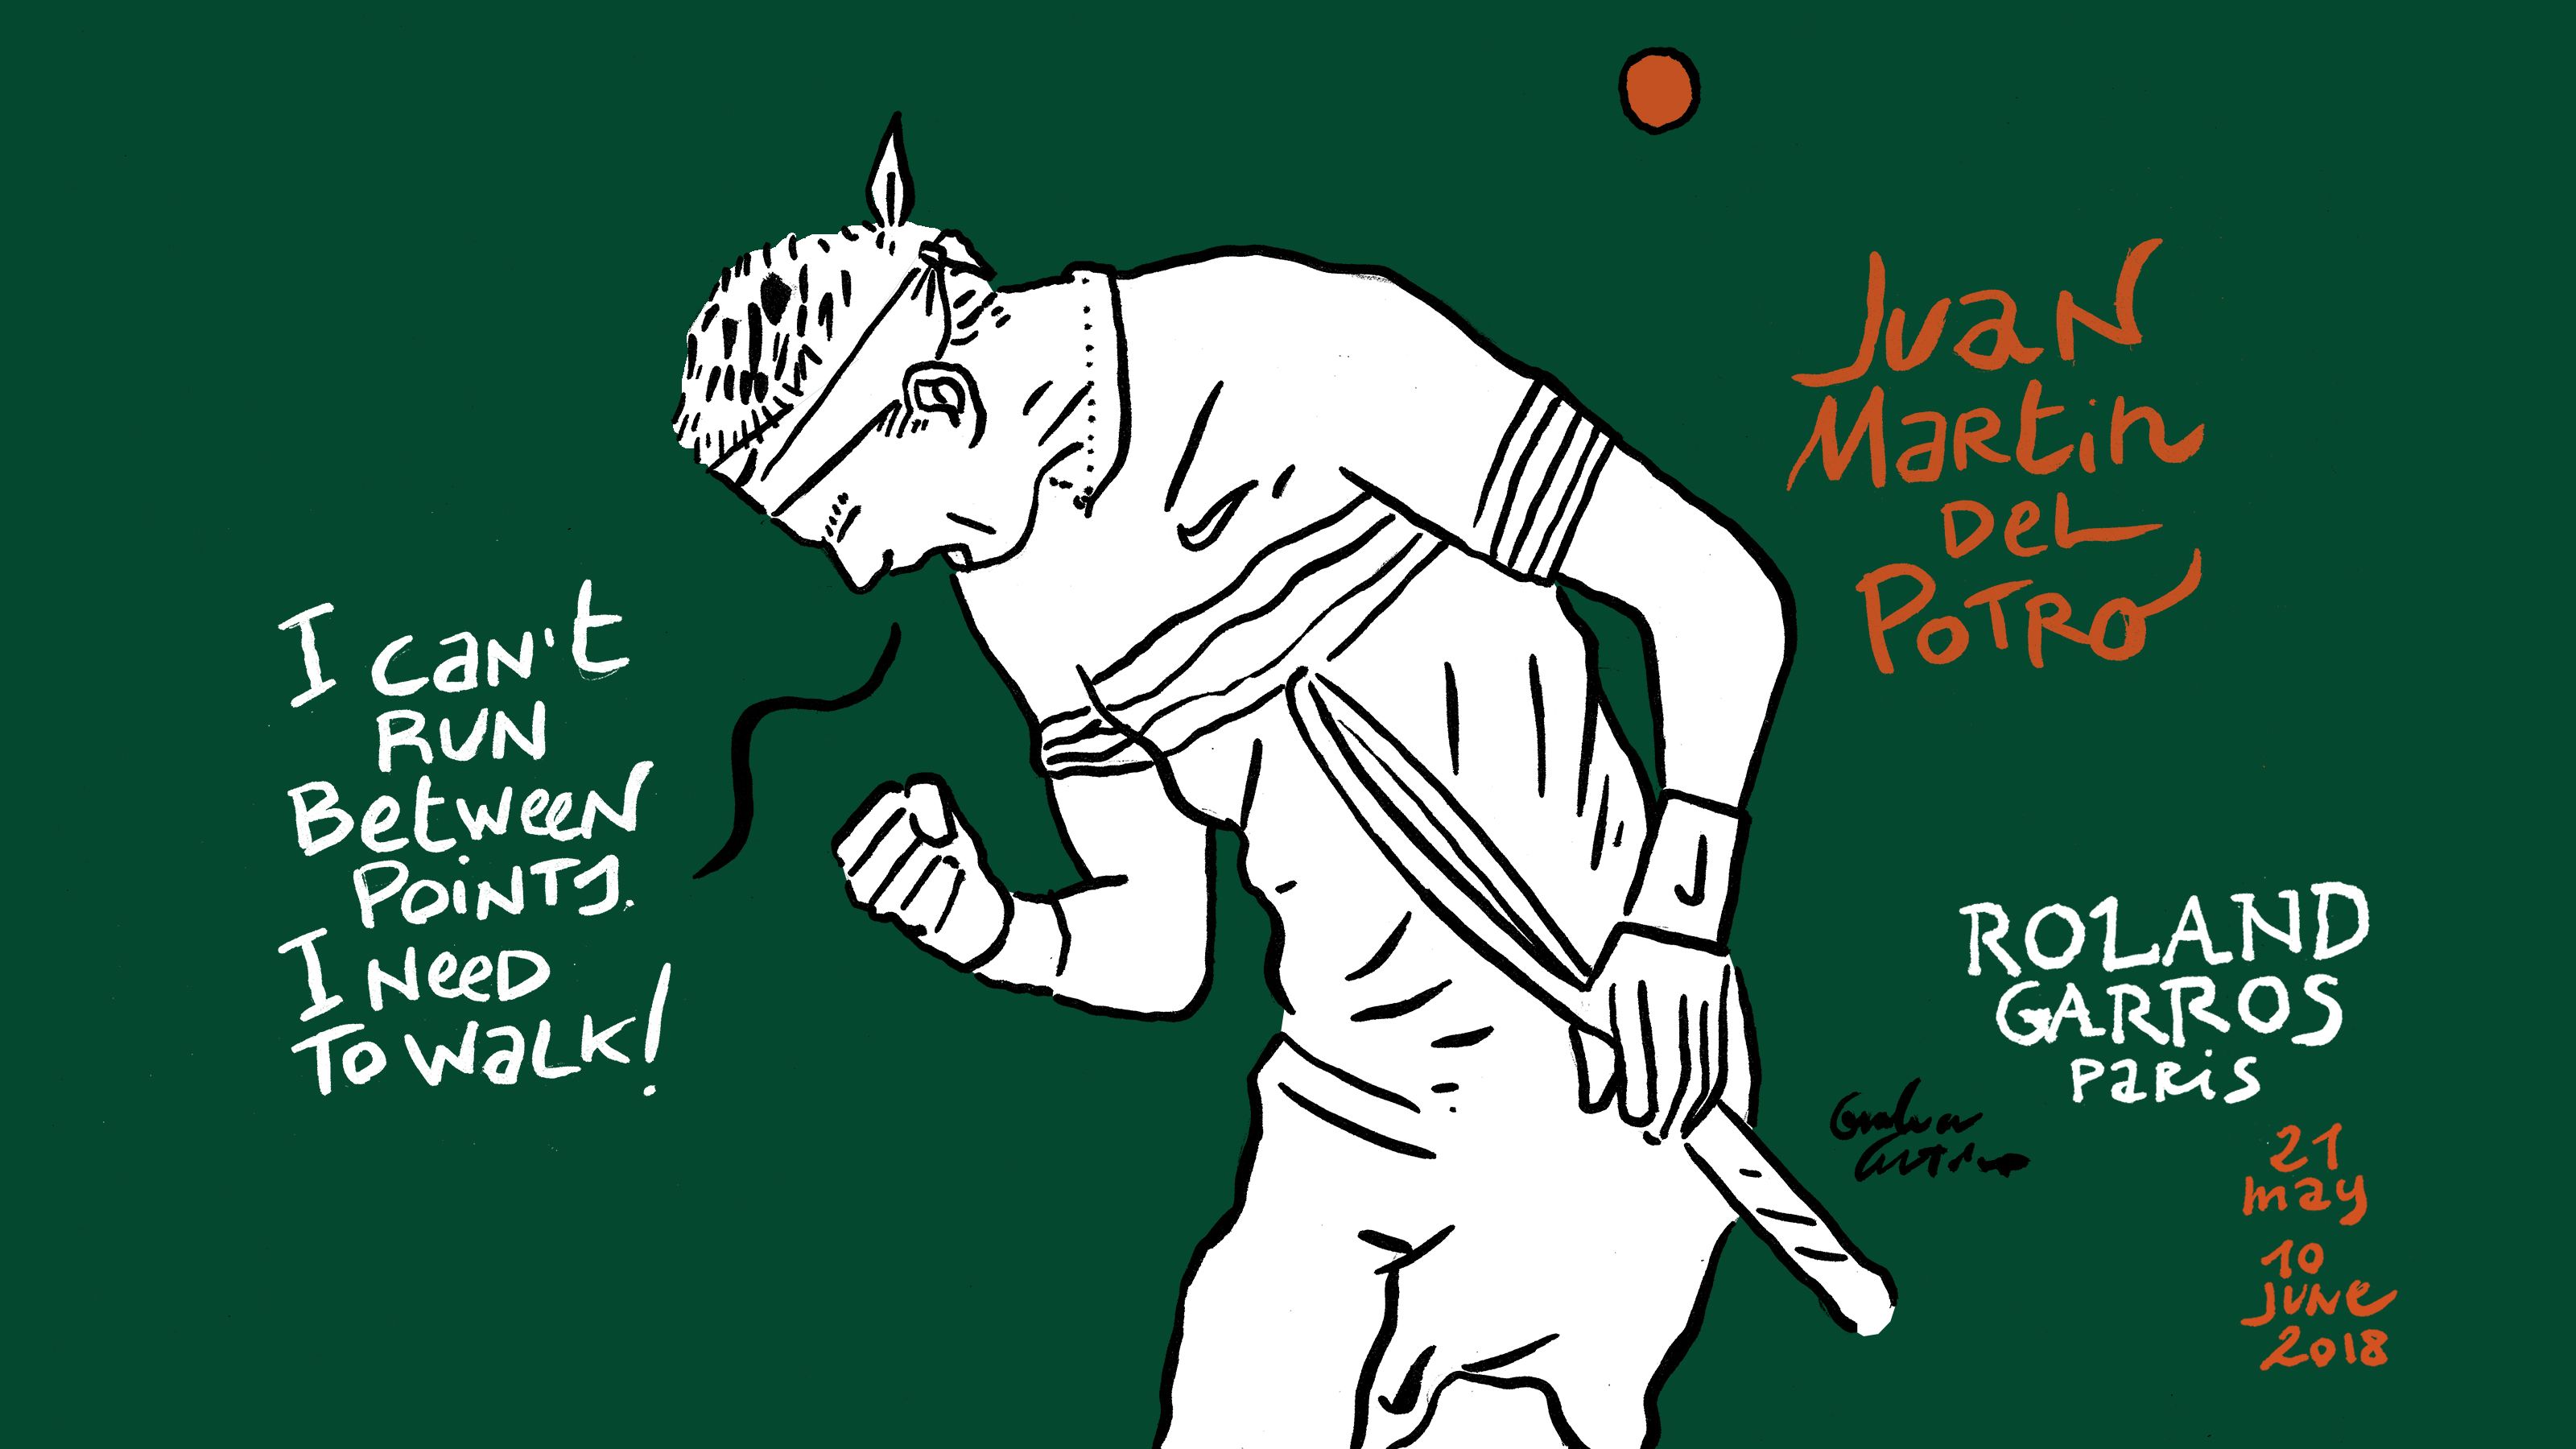 I can't
RUN
Between
Points.
I Need
To walk!
Juan
Martin
Del
Potro
ROLAND
GARROS
PaRis
21
may
10
June
2018